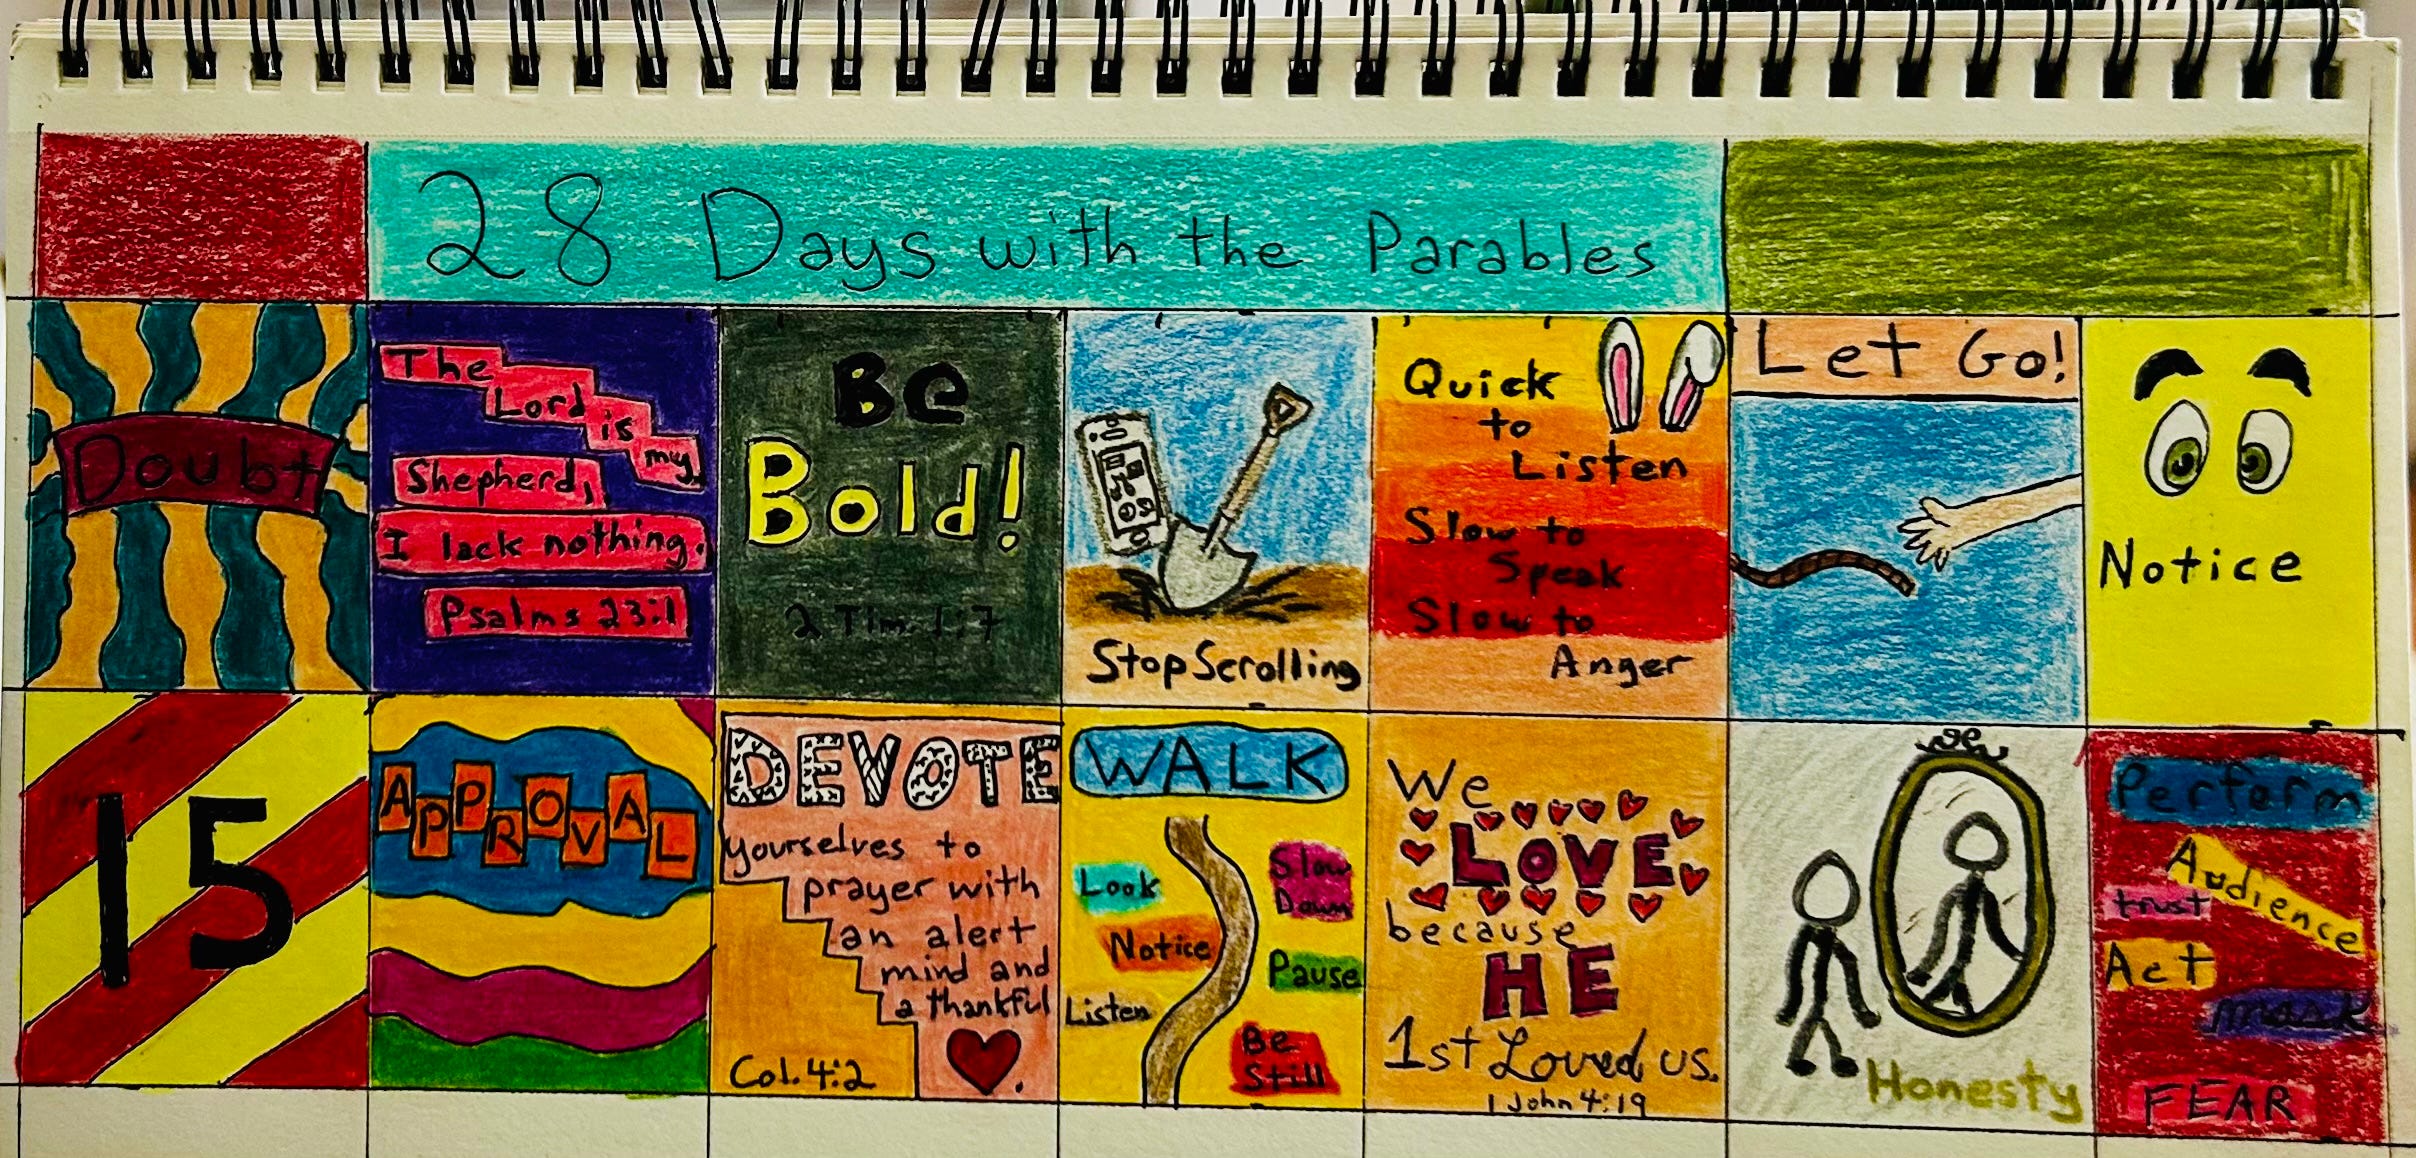 28 Days with the Parables
Doubt
The
Lord
is
my
Shepherd,
I lack nothing.
Psalms 23:1
Be
Bold!
2 Tim. 1:7
Stop Scrolling
Quick
to
Listen
Slow to
Speak
Slow to
Anger
Let Go!
Notice
15
APPROVAL
DEVOTE
yourselves to
prayer with
an alert
mind and
a thankful
.
Col. 4:2
WALK
Look
Slow
Down
Notice
Pause
Listen
Be
Still
We
LOVE
because
HE
1st Loved us.
1 John 4:19
Honesty
Perform
Audience
trust
Act
mask
FEAR